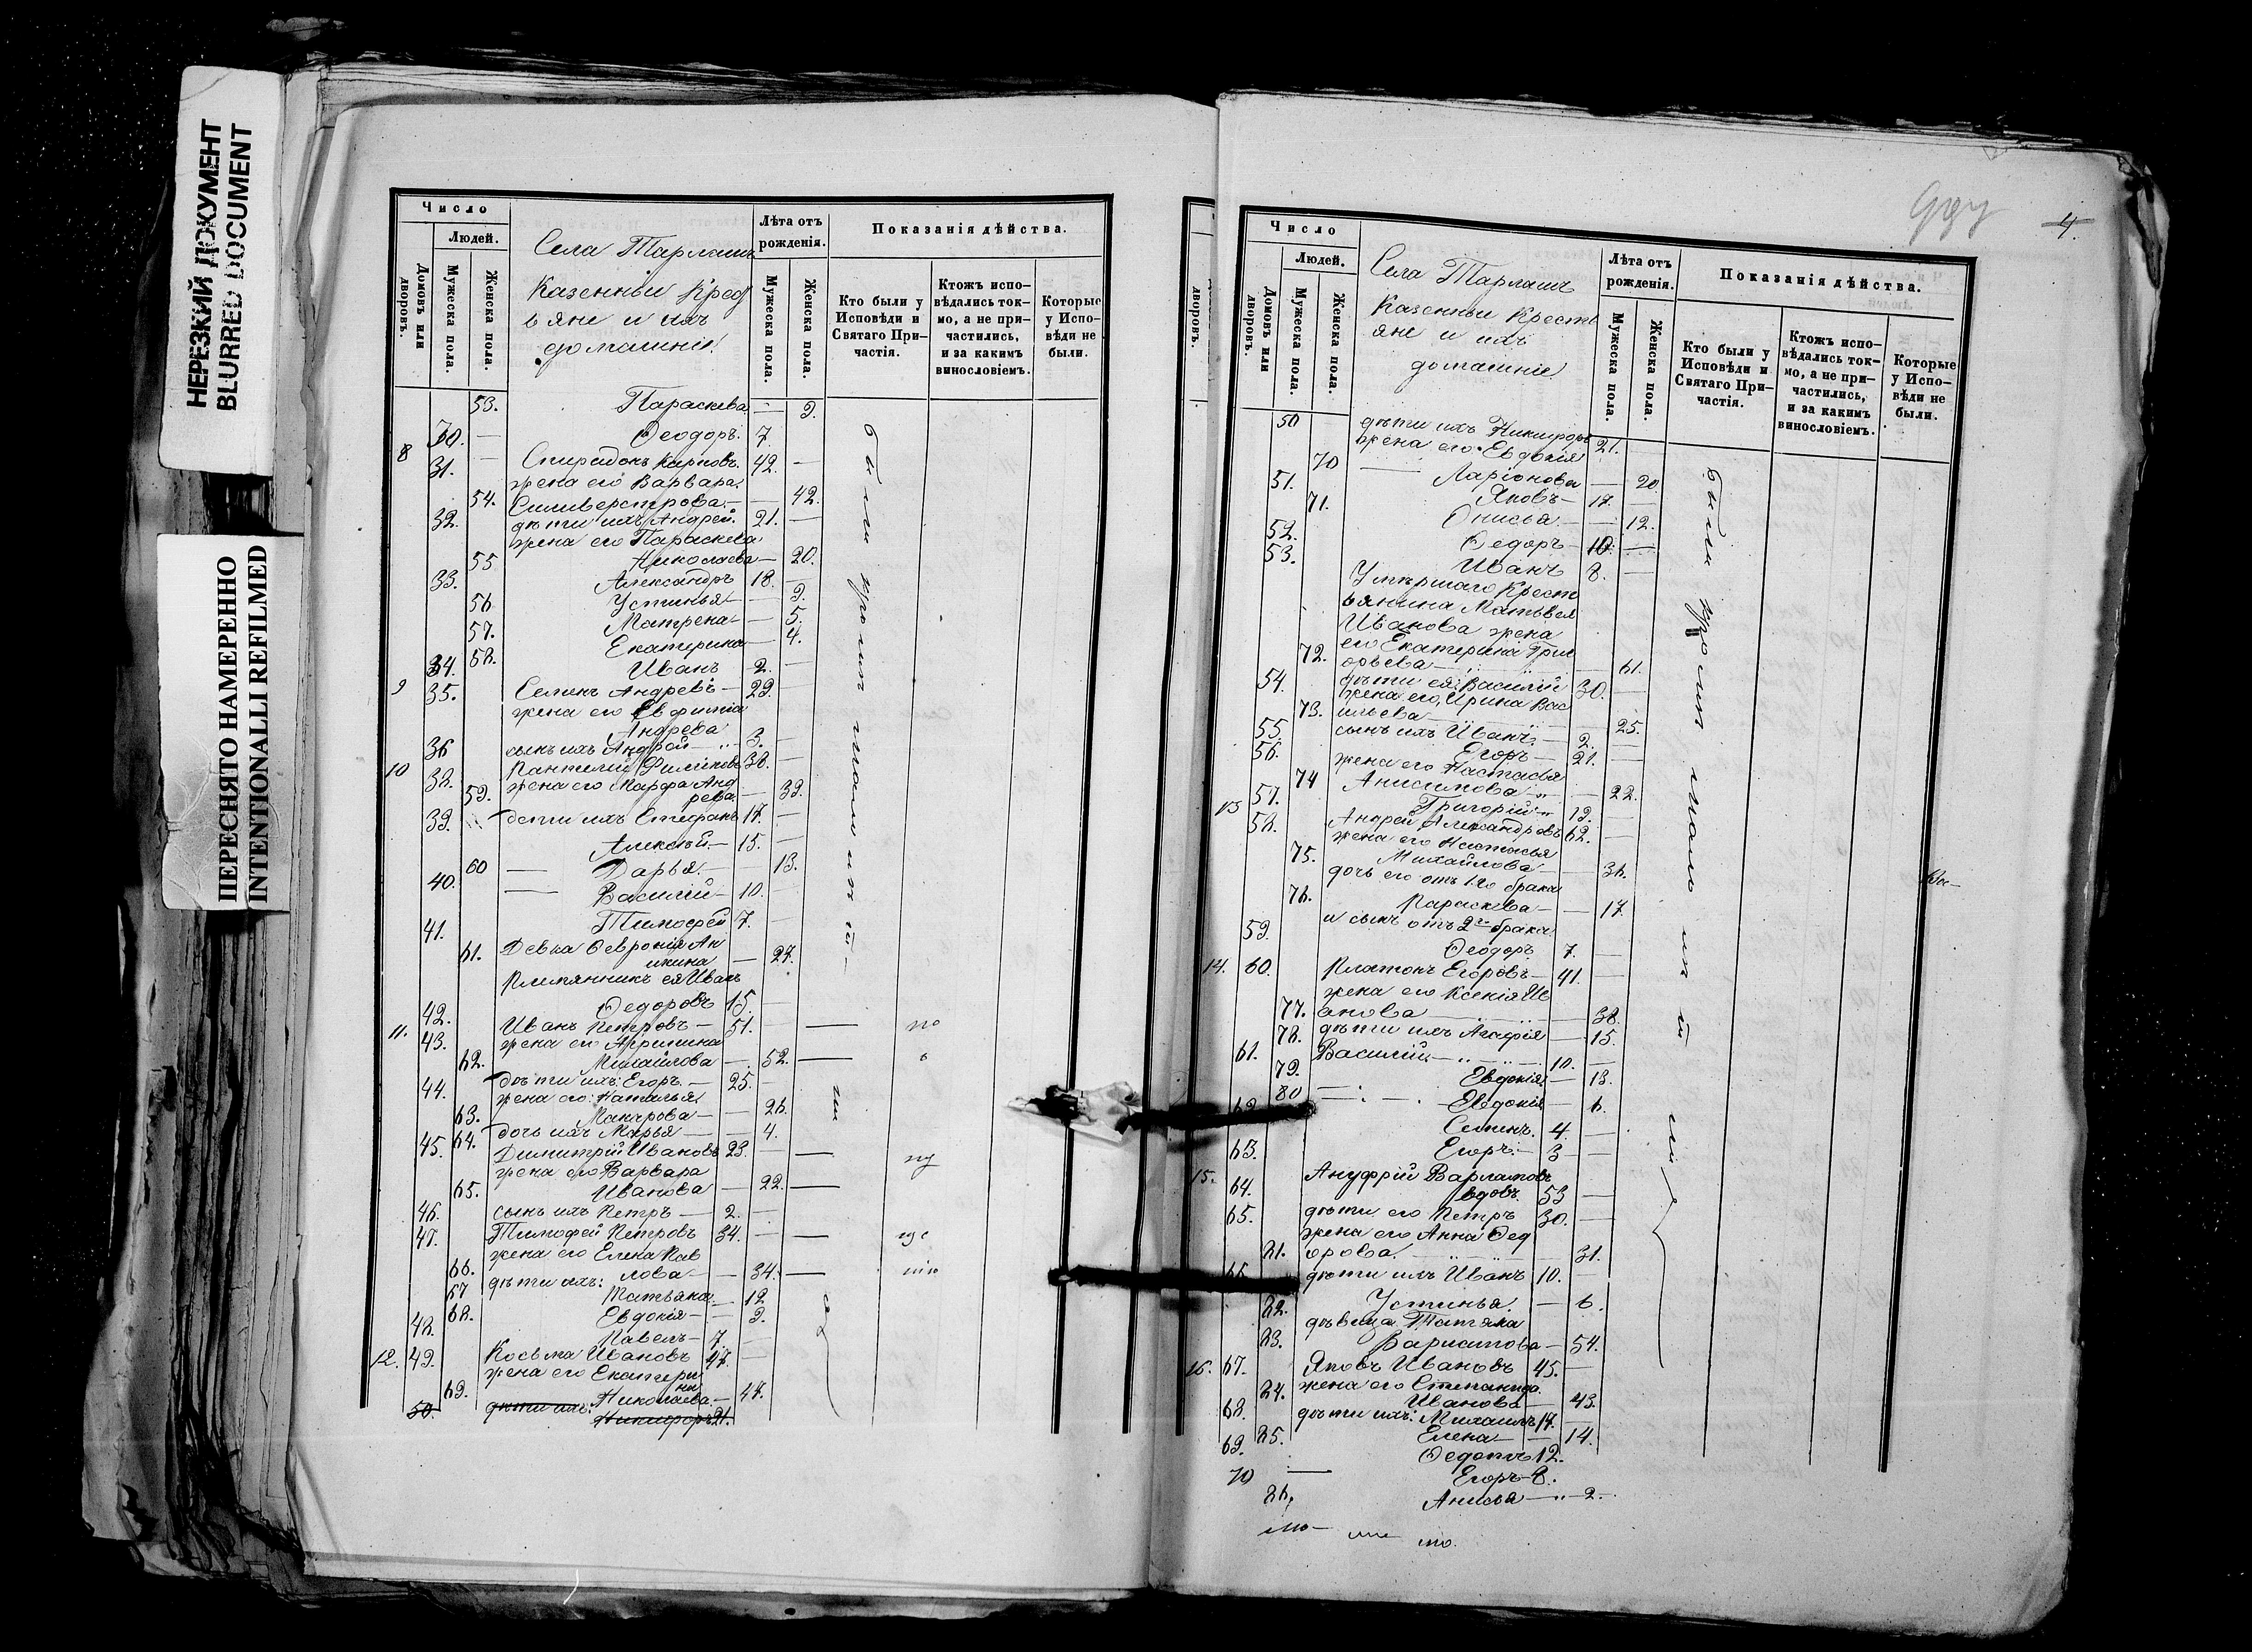 НЕРЕЗКИЙ ДОКУМЕНТ
BLURRED DOCUMENT
ПЕРЕСНЯТО НАМЕРЕННО
INTENTIONALLI REFILMED
Число
Людей.
Домовъ или дворовъ.
Мужеска пола.
Женска пола.
Села Тарлашъ
Казенныи Крест
ьяне и ихъ
домашніе.
Лѣта отъ рожденія.
Мужеска пола.
Женска пола.
Показанія дѣйства.
Кто были у Исповѣди и Святаго При-частія.
Ктожъ испо-вѣдались ток-мо, а не при-частились, и за какимъ винословіемъ.
Которые у Испо-вѣди не были.
53. Параскева — 9.
30. — Ѳеодоръ. 7.
8 31. — Спиридонъ Карповъ. 42. —
жена его Варвара
54. Силиверстрова — — 42.
32. дѣти ихъ Андрей. 21. —
жена его Параскева
55 Николаева — 20.
33. Александръ 18. —
56 Устинья — — 9.
57. Матрена — — 5.
58. Екатерина — 4.
34. Иванъ 2. —
9 35. Семенъ Андревъ — 29. —
жена его Евфимія
Андрева
36 сынъ ихъ Андрей — 3. —
10 38. Пантелей Филиповъ 38. —
59. жена его Марфа Анд
рева. — 39.
39. дети ихъ Стефанъ 17. —
Алексѣй — 15. —
60 — Дарья — — 13.
40. — Василій — 10. —
41. Тимофей 7. —
61. Девка Ѳевронія Ан
икина — 27.
Племянникъ ея Иванъ
42. Ѳедоровъ 15. —
11. 43. Иванъ Петровъ — 51. —
жена его Агрипина
62. Михайлова — 52. —
44. дѣти ихъ: Егоръ. — 25. —
жена его: Наталья
63. Макарова — — 26.
64. дочь ихъ Марья — — 4.
45. Димитрій Ивановъ 23. —
жена его Варвара
65. Иванова — 22. —
46. сынъ ихъ Петръ — 2. —
47. Тимофей Петровъ 34. —
жена его Елена Пав
66. лова — — 34. —
67 дѣти ихъ: Татьяна — 12
68. Евдокія — — 9.
48. Павелъ — 7. —
12. 49. Косьма Ивановъ 47. —
жена его Екатери
на
69. Николаева — 47.
50. дѣти ихъ: Никифоръ 21.
были
4.
Число
Людей.
Домовъ или дворовъ.
Мужеска пола.
Женска пола.
Села Тарлашъ
Казенныи Кресть
яне и ихъ
домашніе.
Лѣта отъ рожденія.
Мужеска пола.
Женска пола.
Показанія дѣйства.
Кто были у Исповѣди и Святаго При-частія.
Ктожъ испо-вѣдались ток-мо, а не при-частились, и за какимъ винословіемъ.
Которые у Испо-вѣди не были.
50 дѣти ихъ Никифоръ 21. —
жена его Евдокія
70 — Ларіонова — 20
51. Яковъ — 17. —
71. Онисья — — 12.
52. Ѳедоръ — 10. —
53. Иванъ 8. —
Умершаго Крест
ьянина Матьвея
Иванова жена
его Екатерина Григ
72. орьева — — 61.
54. дѣти ея: Василій 30. —
жена его, Ирина Вас
73. ильева — — 25.
55. сынъ ихъ Иванъ — 2. —
56. Егоръ — 21. —
жена его Настасья
74 Анисимова — — 22.
57. Григорій 19. —
13 58. Андрей Александровъ 62. —
жена его Настасья
75. Михайлова — — 36.
дочь его отъ 1го брака
76. Параскева — — 17.
и сынъ отъ 2го брака
59. Ѳеодоръ 7. —
14. 60. Платонъ Егоровъ — 41. —
жена его Ксенія Ив
77. анова — — 38.
78. дѣти ихъ Агафія — 15.
61. Василій — 10. —
79. Евдокія — 13.
80 — Евдокія — 6.
62 Семенъ. 4. —
63. Егоръ. — 3 —
15. 64. Ануфрій Варламовъ
вдовъ. 53 —
65. дѣти его Петръ 30. —
жена его Анна Ѳед
81. орова. — — 31.
66. дѣти ихъ Иванъ 10. —
82. Устинья. — 6.
дѣвица Татяна
83. Варламова — 54.
16. 67. Яковъ Ивановъ 45. —
жена его Степанида
84. Иванова — 43.
68. дѣти ихъ: Михаилъ 17. —
85. Елена — — 14.
69. Ѳедотъ 12.
70 — Егоръ — 8.
86. Анисья — 2.
были